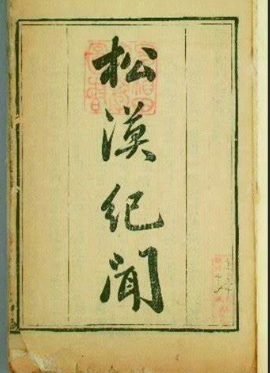 松漠紀聞